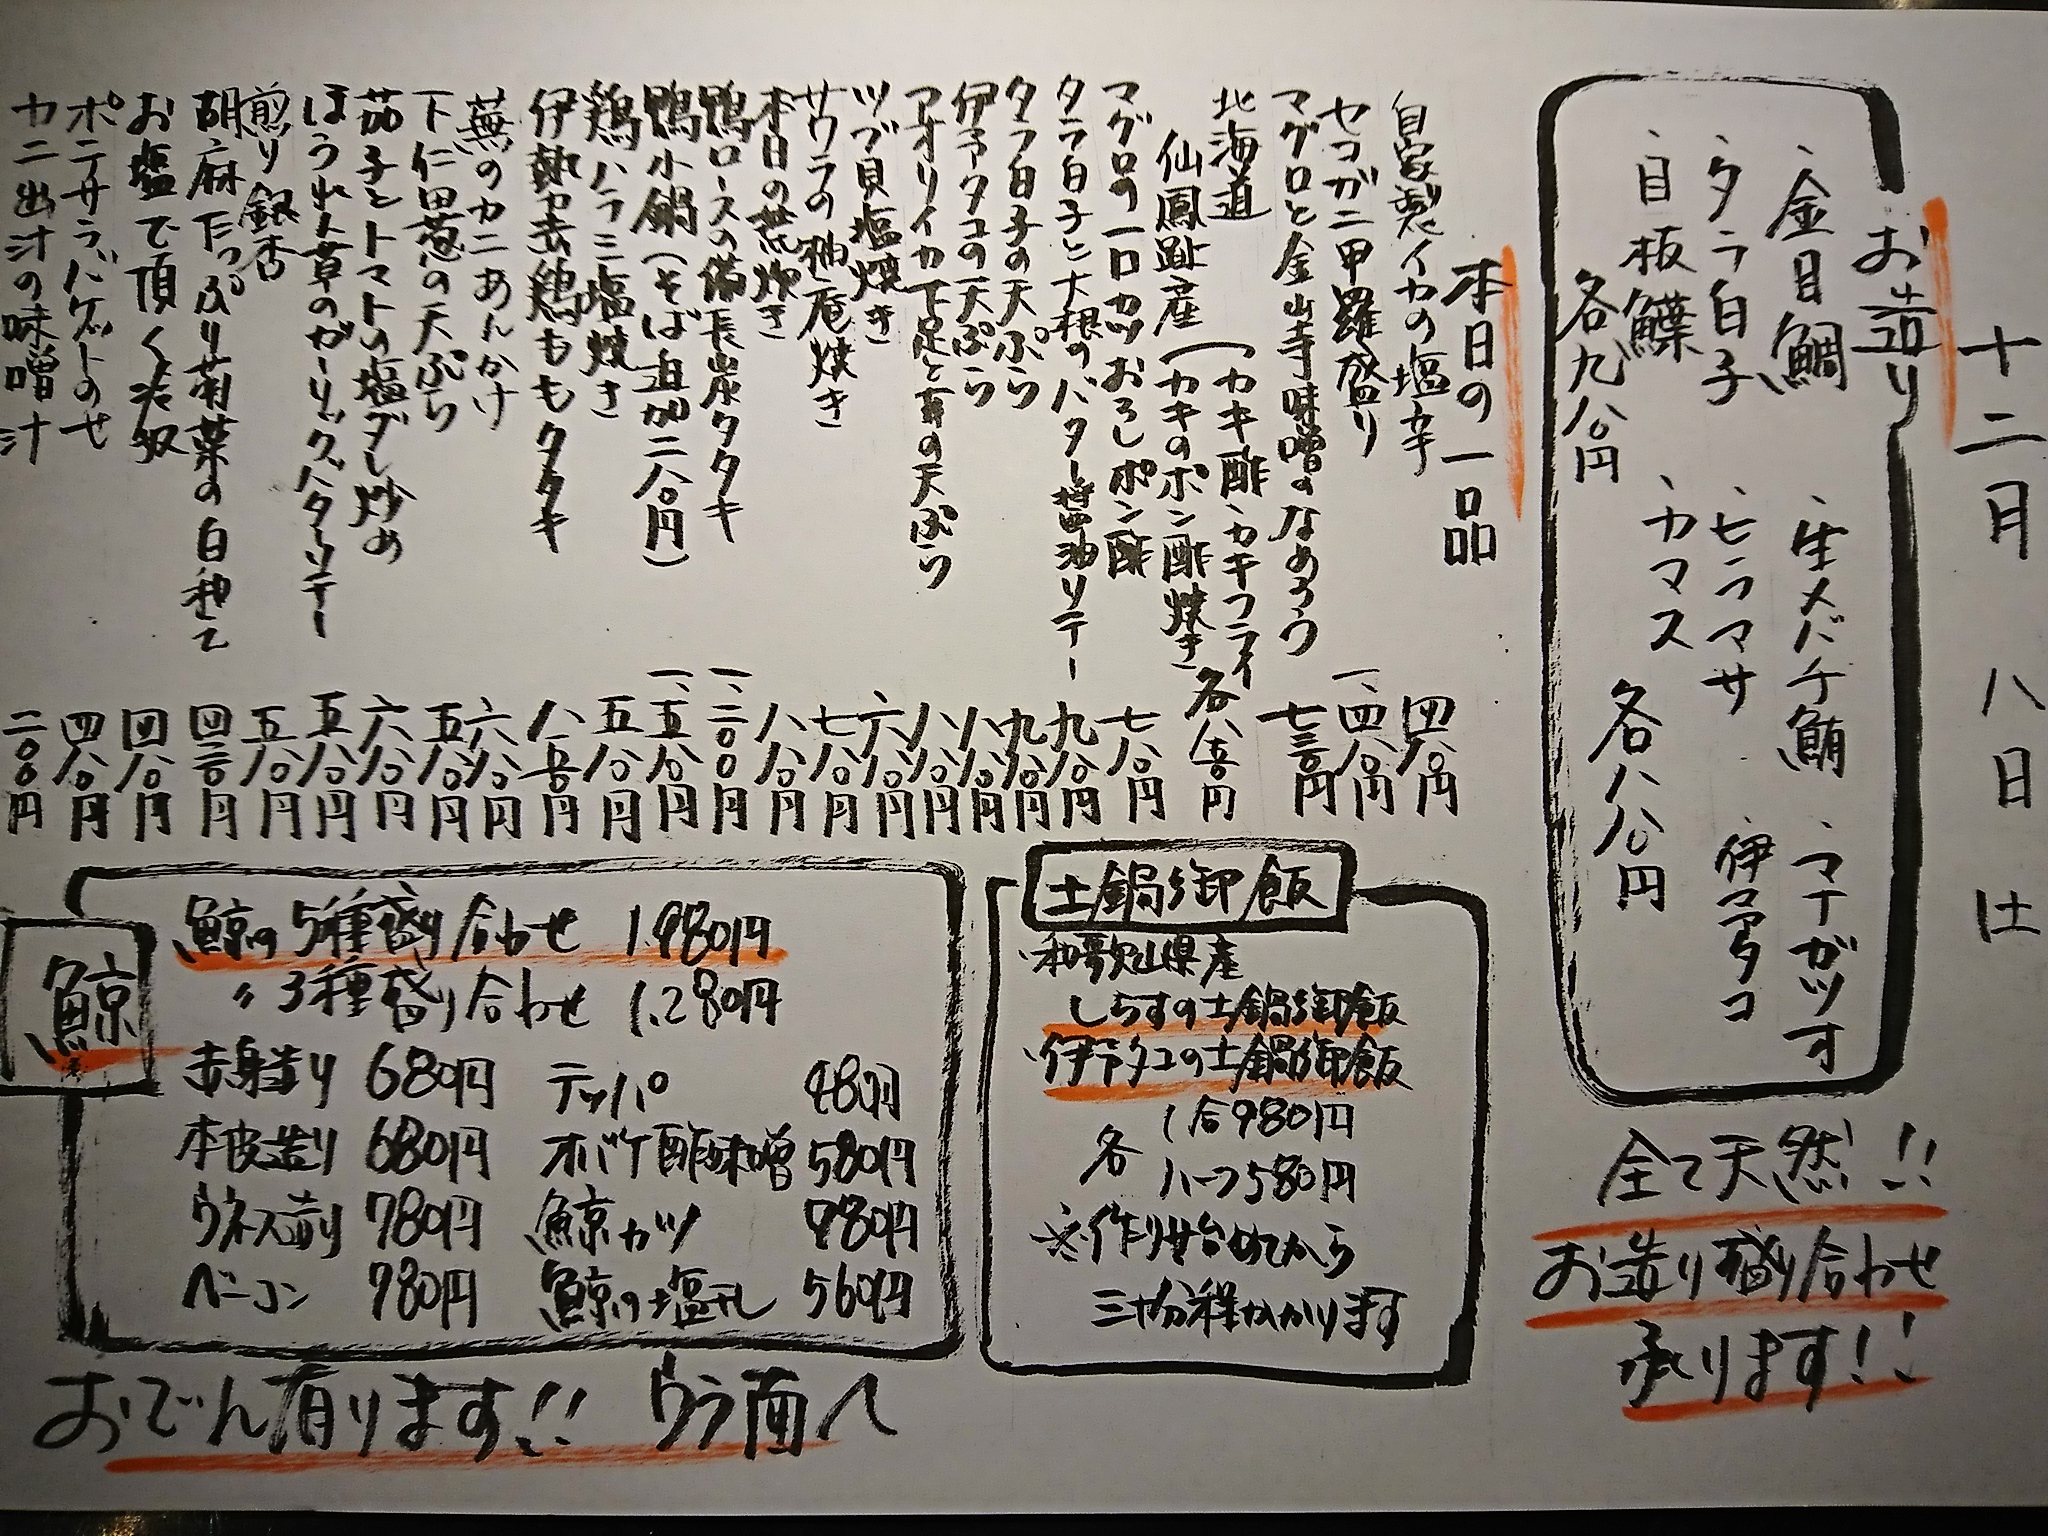 十二月八日 土
お造り
・金目鯛 ・生メバチ鮪 ・マナガツオ
・タラ白子 ・ヒラマサ ・伊予タコ
・目板鰈 ・カマス
各九八〇円 各八八〇円
全て天然!!
お造り盛り合わせ
承ります!!
本日の一品
自家製イカの塩辛 四八〇円
セコガニ甲羅盛り 一、四八〇円
マグロと金山寺味噌のなめろう 七三〇円
北海道 仙鳳趾産(カキ酢、カキフライ
(カキのポン酢焼き 各八五〇円
マグロの一口カツおろしポン酢 七八〇円
タラ白子と大根のバター醤油ソテー 九八〇円
タラ白子の天ぷら 九八〇円
伊予タコの天ぷら 八八〇円
アオリイカ下足と茸の天ぷら 八八〇円
ツブ貝塩焼き 六八〇円
サワラの柚庵焼き 七八〇円
本日の荒炊き 八八〇円
鴨ロースの備長炭タタキ 一、二〇〇円
鴨小鍋(そば追加二八〇円) 一、五八〇円
鶏ハラミ塩焼き 五八〇円
伊勢赤鶏ももタタキ 八五〇円
蕪のカニあんかけ 六八〇円
下仁田葱の天ぷら 五八〇円
茄子とトマトの塩ダレ炒め 六八〇円
ほうれん草のガーリックバターソテー 五八〇円
煎り銀杏 五八〇円
胡麻たっぷり菊菜の白和え 四三〇円
お塩で頂く冷奴 四八〇円
ポテサラ、バゲットのせ 四八〇円
カニ出汁の味噌汁 二〇〇円
土鍋御飯
・和歌山県産
しらすの土鍋御飯
・伊予タコの土鍋御飯
各 1合980円
ハーフ580円
※作り始めてから
三十分程かかります
鯨
鯨の5種盛り合わせ 1.980円
〃3種盛り合わせ 1.280円
赤身造り 680円 テッパ 480円
本皮造り 680円 オバケ酢味噌 580円
ウネス造り 780円 鯨カツ 880円
ベーコン 980円 鯨の塩干し 560円
おでん有ります!! ウラ面へ